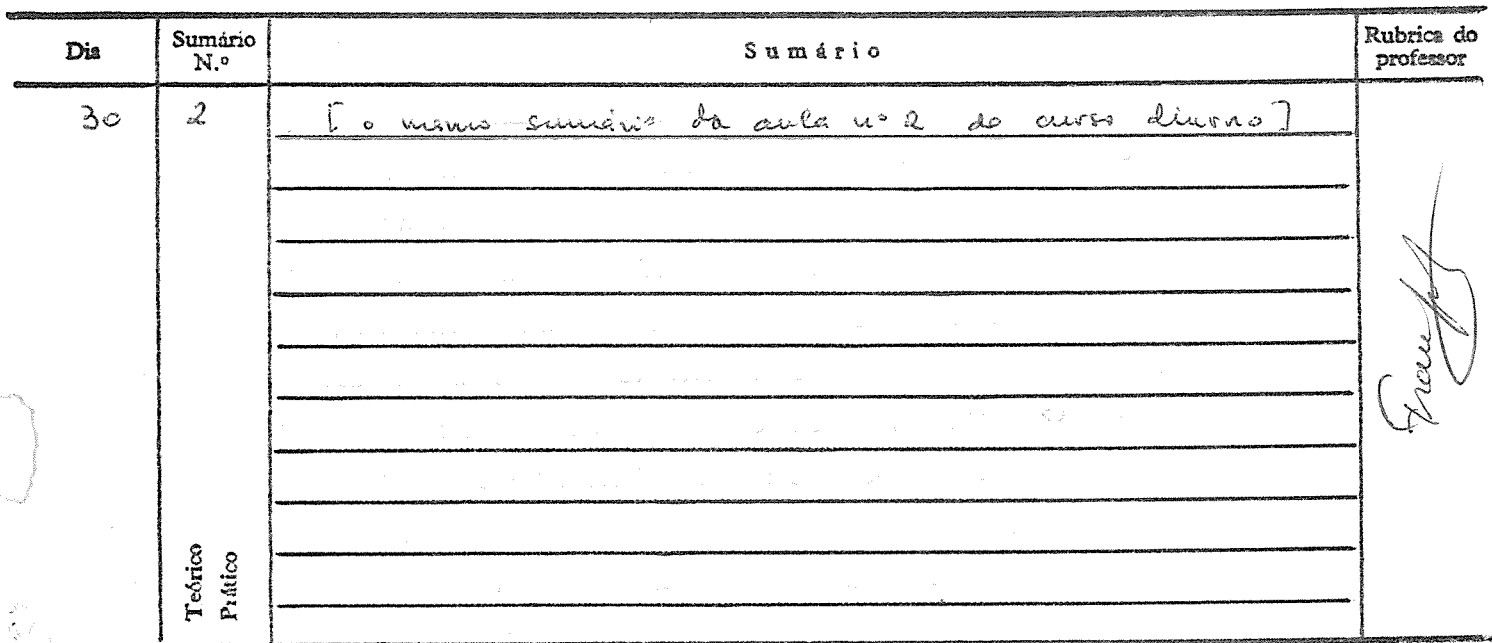 Dia
Sumário N.º
Sumário
Rubrica do professor
30
2
[o mesmo sumário da aula nº 2 do curso diurno]
Teórico
Prático